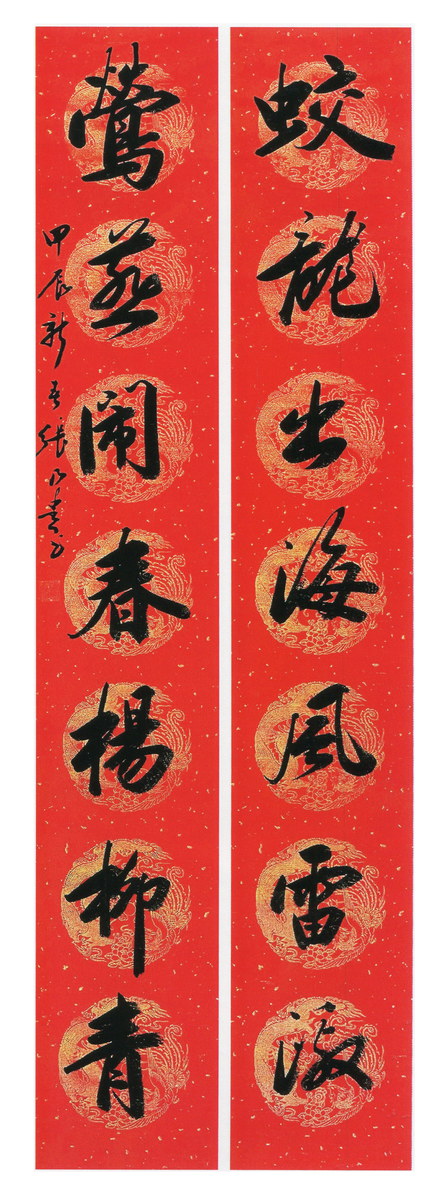 蛟龍出海風雷激
鶯燕闹春楊柳青
甲辰新春張乃